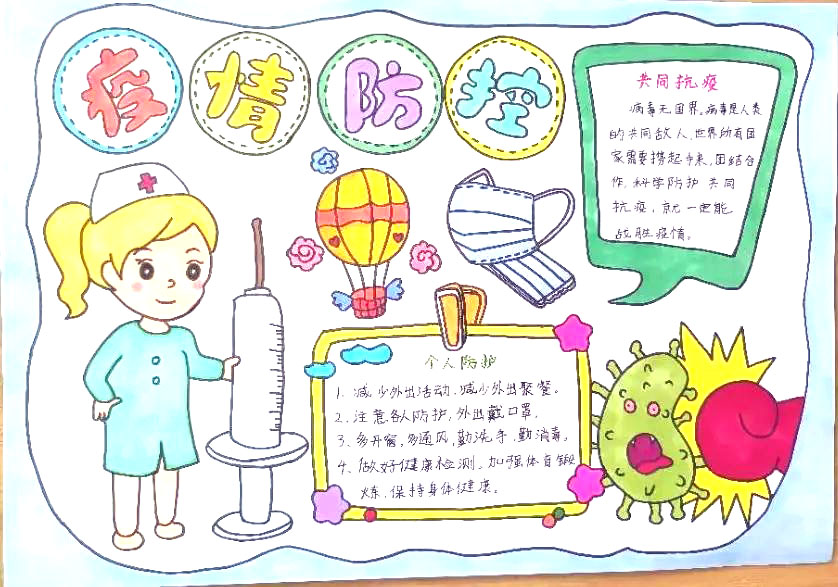 疫情防控
共同抗疫
病毒无国界。病毒是人类
的共同敌人,世界所有国
家需要携起手来,团结合
作,科学防护 共同
抗疫,就一定能
战胜疫情。
个人防护
1、减少外出活动,减少外出聚餐。
2、注意各人防护,外出戴口罩。
3、多开窗,多通风,勤洗手,勤消毒。
4、做好健康检测。加强体育锻
炼、保持身体健康。